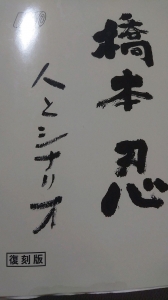 橋本忍
人とシナリオ
復刻版